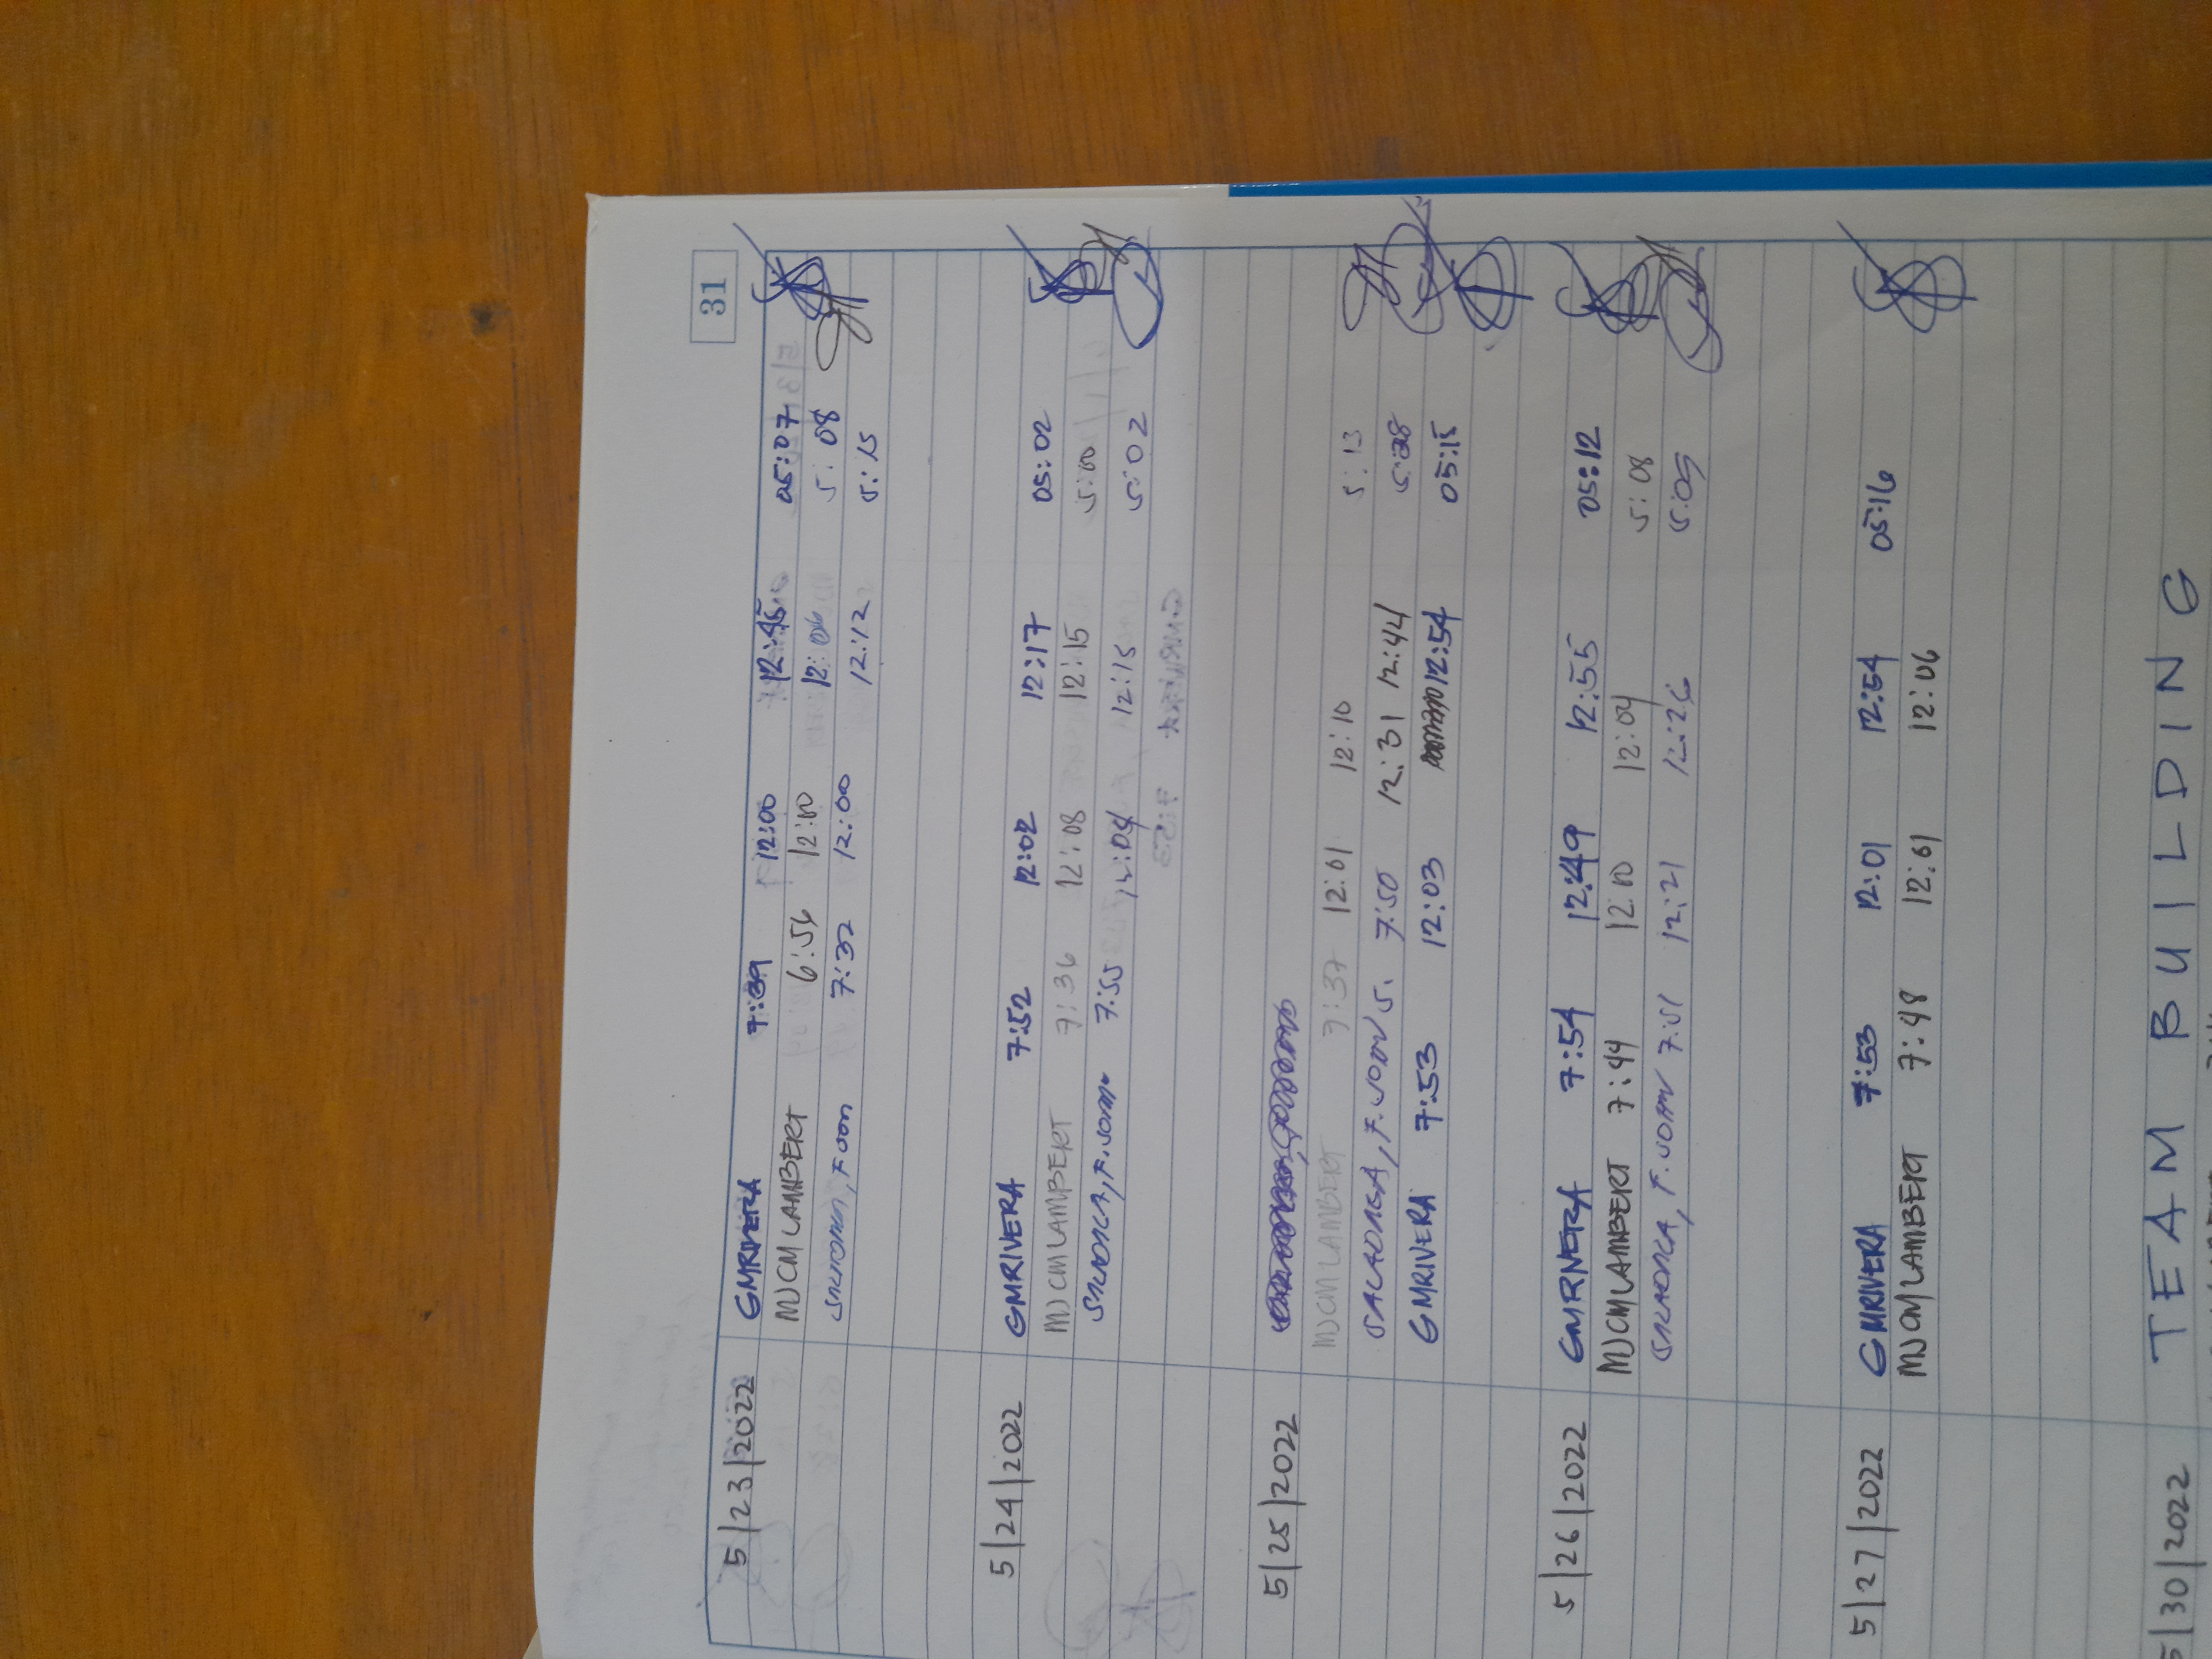 31
5|23|2022 GMRIVERA 7:39 12:00 12:45 05:07
MJCMLAMBERT 6:56 12:00 12:06 5:08
7:32 12:00 12:12 5:15
5|24|2022 GMRIVERA 7:52 12:02 12:17 05:02
MJCMLAMBERT 7:36 12:08 12:15 5:00
7:55 12:04 12:15 5:02
5|25|2022
MJCMLAMBERT 7:37 12:01 12:10 5:13
SALADAGA, F. JOHN S. 7:50 12:31 12:44 5:28
GMRIVERA 7:53 12:03 12:54 05:15
5|26|2022 GMRIVERA 7:54 12:49 12:55 05:12
MJCMLAMBERT 7:44 12:00 12:04 5:08
7:51 12:21 12:26 5:05
5|27|2022 GMRIVERA 7:53 12:01 12:54 05:16
MJCMLAMBERT 7:48 12:01 12:06
5|30|2022 TEAM BUILDING